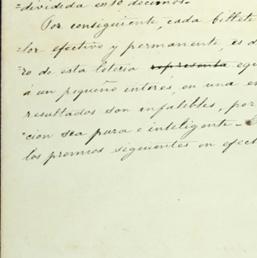 =dividida en 10 decimos.
Por consiguiente, cada billete
=lor efectivo y permanente, es d
ro de esta loteria represento equ
á un pequeño interés, en una em
resultados son infalibles, por
cion sea pura e inteligente —
los premios siguientes en efect